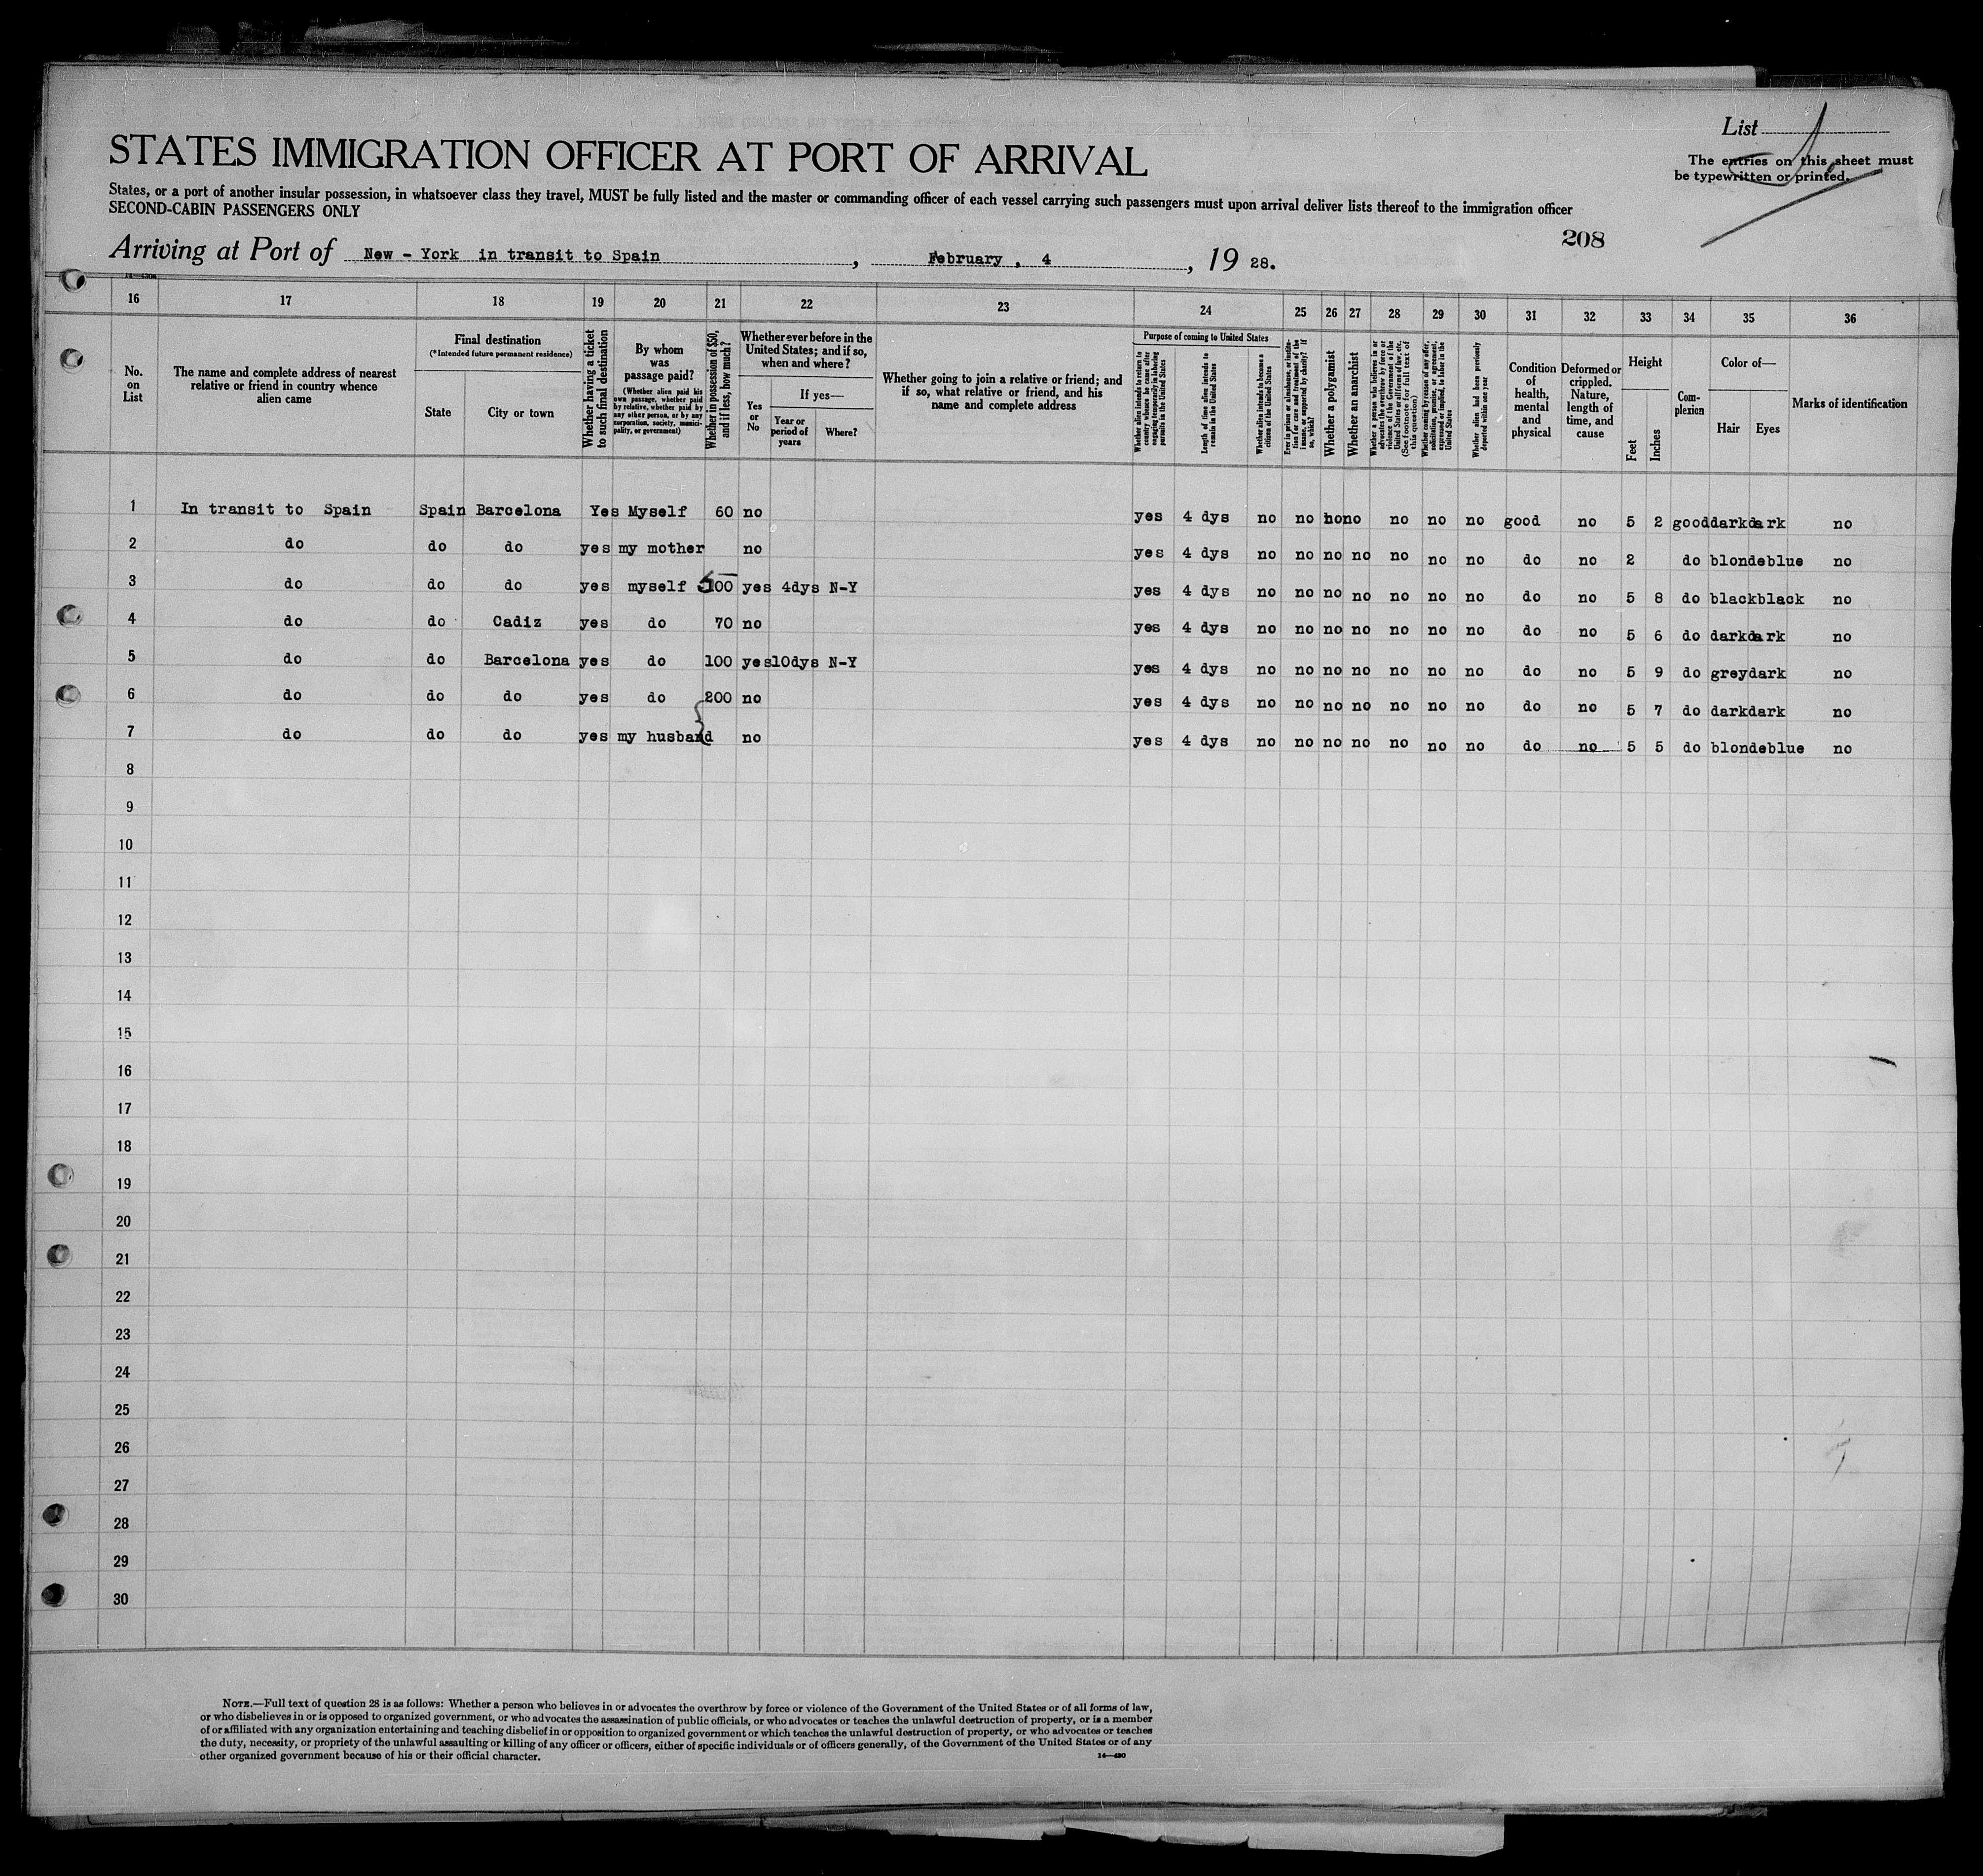 List
The entries on this sheet must
be typewritten or printed.
STATES IMMIGRATION OFFICER AT PORT OF ARRIVAL
States, or a port of another insular possession, in whatsoever class they travel, MUST be fully listed and the master or commanding officer of each vessel carrying such passengers must upon arrival deliver lists thereof to the immigration officer
SECOND-CABIN PASSENGERS ONLY
208
Arriving at Port of New - York in transit to Spain, February, 4, 19 28.
16 17 18 19 20 21 22 23 24 25 26 27 28 29 30 31 32 33 34 35 36
No.
on
List
The name and complete address of nearest
relative or friend in country whence
alien came
Final destination
(*Intended future permanent residence)
State
City or town
Whether having a ticket
to such final destination
By whom
was
passage paid?
(Whether alien paid his
own passage, whether paid
by relative, whether paid by
any other person, or by any
corporation, society, munici-
pality, or government)
Whether in possession of $50,
and if less, how much?
Whether ever before in the
United States; and if so,
when and where?
Yes
or
No
If yes—
Year or
period of
years
Where?
Whether going to join a relative or friend; and
if so, what relative or friend, and his
name and complete address
Purpose of coming to United States
Whether alien intends to return to
country whence he came after
engaging temporarily in laboring
pursuits in the United States
Length of time alien intends to
remain in the United States
Whether alien intends to become a
citizen of the United States
Ever in prison or almshouse, or institu-
tion for care and treatment of the
insane, or supported by charity? If
so, which?
Whether a polygamist
Whether an anarchist
Whether a person who believes in or
advocates the overthrow by force or
violence of the Government of the
United States or all forms of law, etc.
(See footnote for full text of
this question)
Whether coming by reason of any offer,
solicitation, promise, or agreement,
expressed or implied, to labor in the
United States
Whether alien had been previously
deported within one year
Condition
of
health,
mental
and
physical
Deformed or
crippled.
Nature,
length of
time, and
cause
Height
Feet
Inches
Com-
plexion
Color of—
Hair
Eyes
Marks of identification
1 In transit to Spain Spain Barcelona Yes Myself 60 no yes 4 dys no no no no no no no good no 5 2 good dark dark no
2 do do do yes my mother no yes 4 dys no no no no no no no do no 2 do blonde blue no
3 do do do yes myself 100 yes 4dys N-Y yes 4 dys no no no no no no no do no 5 8 do black black no
4 do do Cadiz yes do 70 no yes 4 dys no no no no no no no do no 5 6 do dark dark no
5 do do Barcelona yes do 100 yes 10dys N-Y yes 4 dys no no no no no no no do no 5 9 do grey dark no
6 do do do yes do 200 no yes 4 dys no no no no no no no do no 5 7 do dark dark no
7 do do do yes my husband no yes 4 dys no no no no no no no do no 5 5 do blonde blue no
8
9
10
11
12
13
14
15
16
17
18
19
20
21
22
23
24
25
26
27
28
29
30
NOTE.—Full text of question 28 is as follows: Whether a person who believes in or advocates the overthrow by force or violence of the Government of the United States or of all forms of law,
or who disbelieves in or is opposed to organized government, or who advocates the assassination of public officials, or who advocates or teaches the unlawful destruction of property, or is a member
of or affiliated with any organization entertaining and teaching disbelief in or opposition to organized government or which teaches the unlawful destruction of property, or who advocates or teaches
the duty, necessity, or propriety of the unlawful assaulting or killing of any officer or officers, either of specific individuals or of officers generally, of the Government of the United States or of any
other organized government because of his or their official character.
14—430